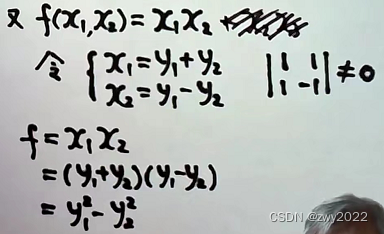 又 f(x₁,x₂)=x₁x₂
令 { x₁=y₁+y₂
x₂=y₁-y₂ |1 1
1 -1| ≠0
f=x₁x₂
=(y₁+y₂)(y₁-y₂)
=y₁²-y₂²
CSDN @zwy2022